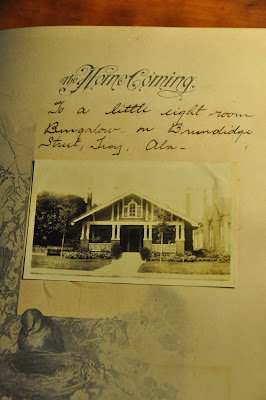 The Home Coming.
To a little eight room
Bungalow on Brundidge
Street, Troy, Ala-